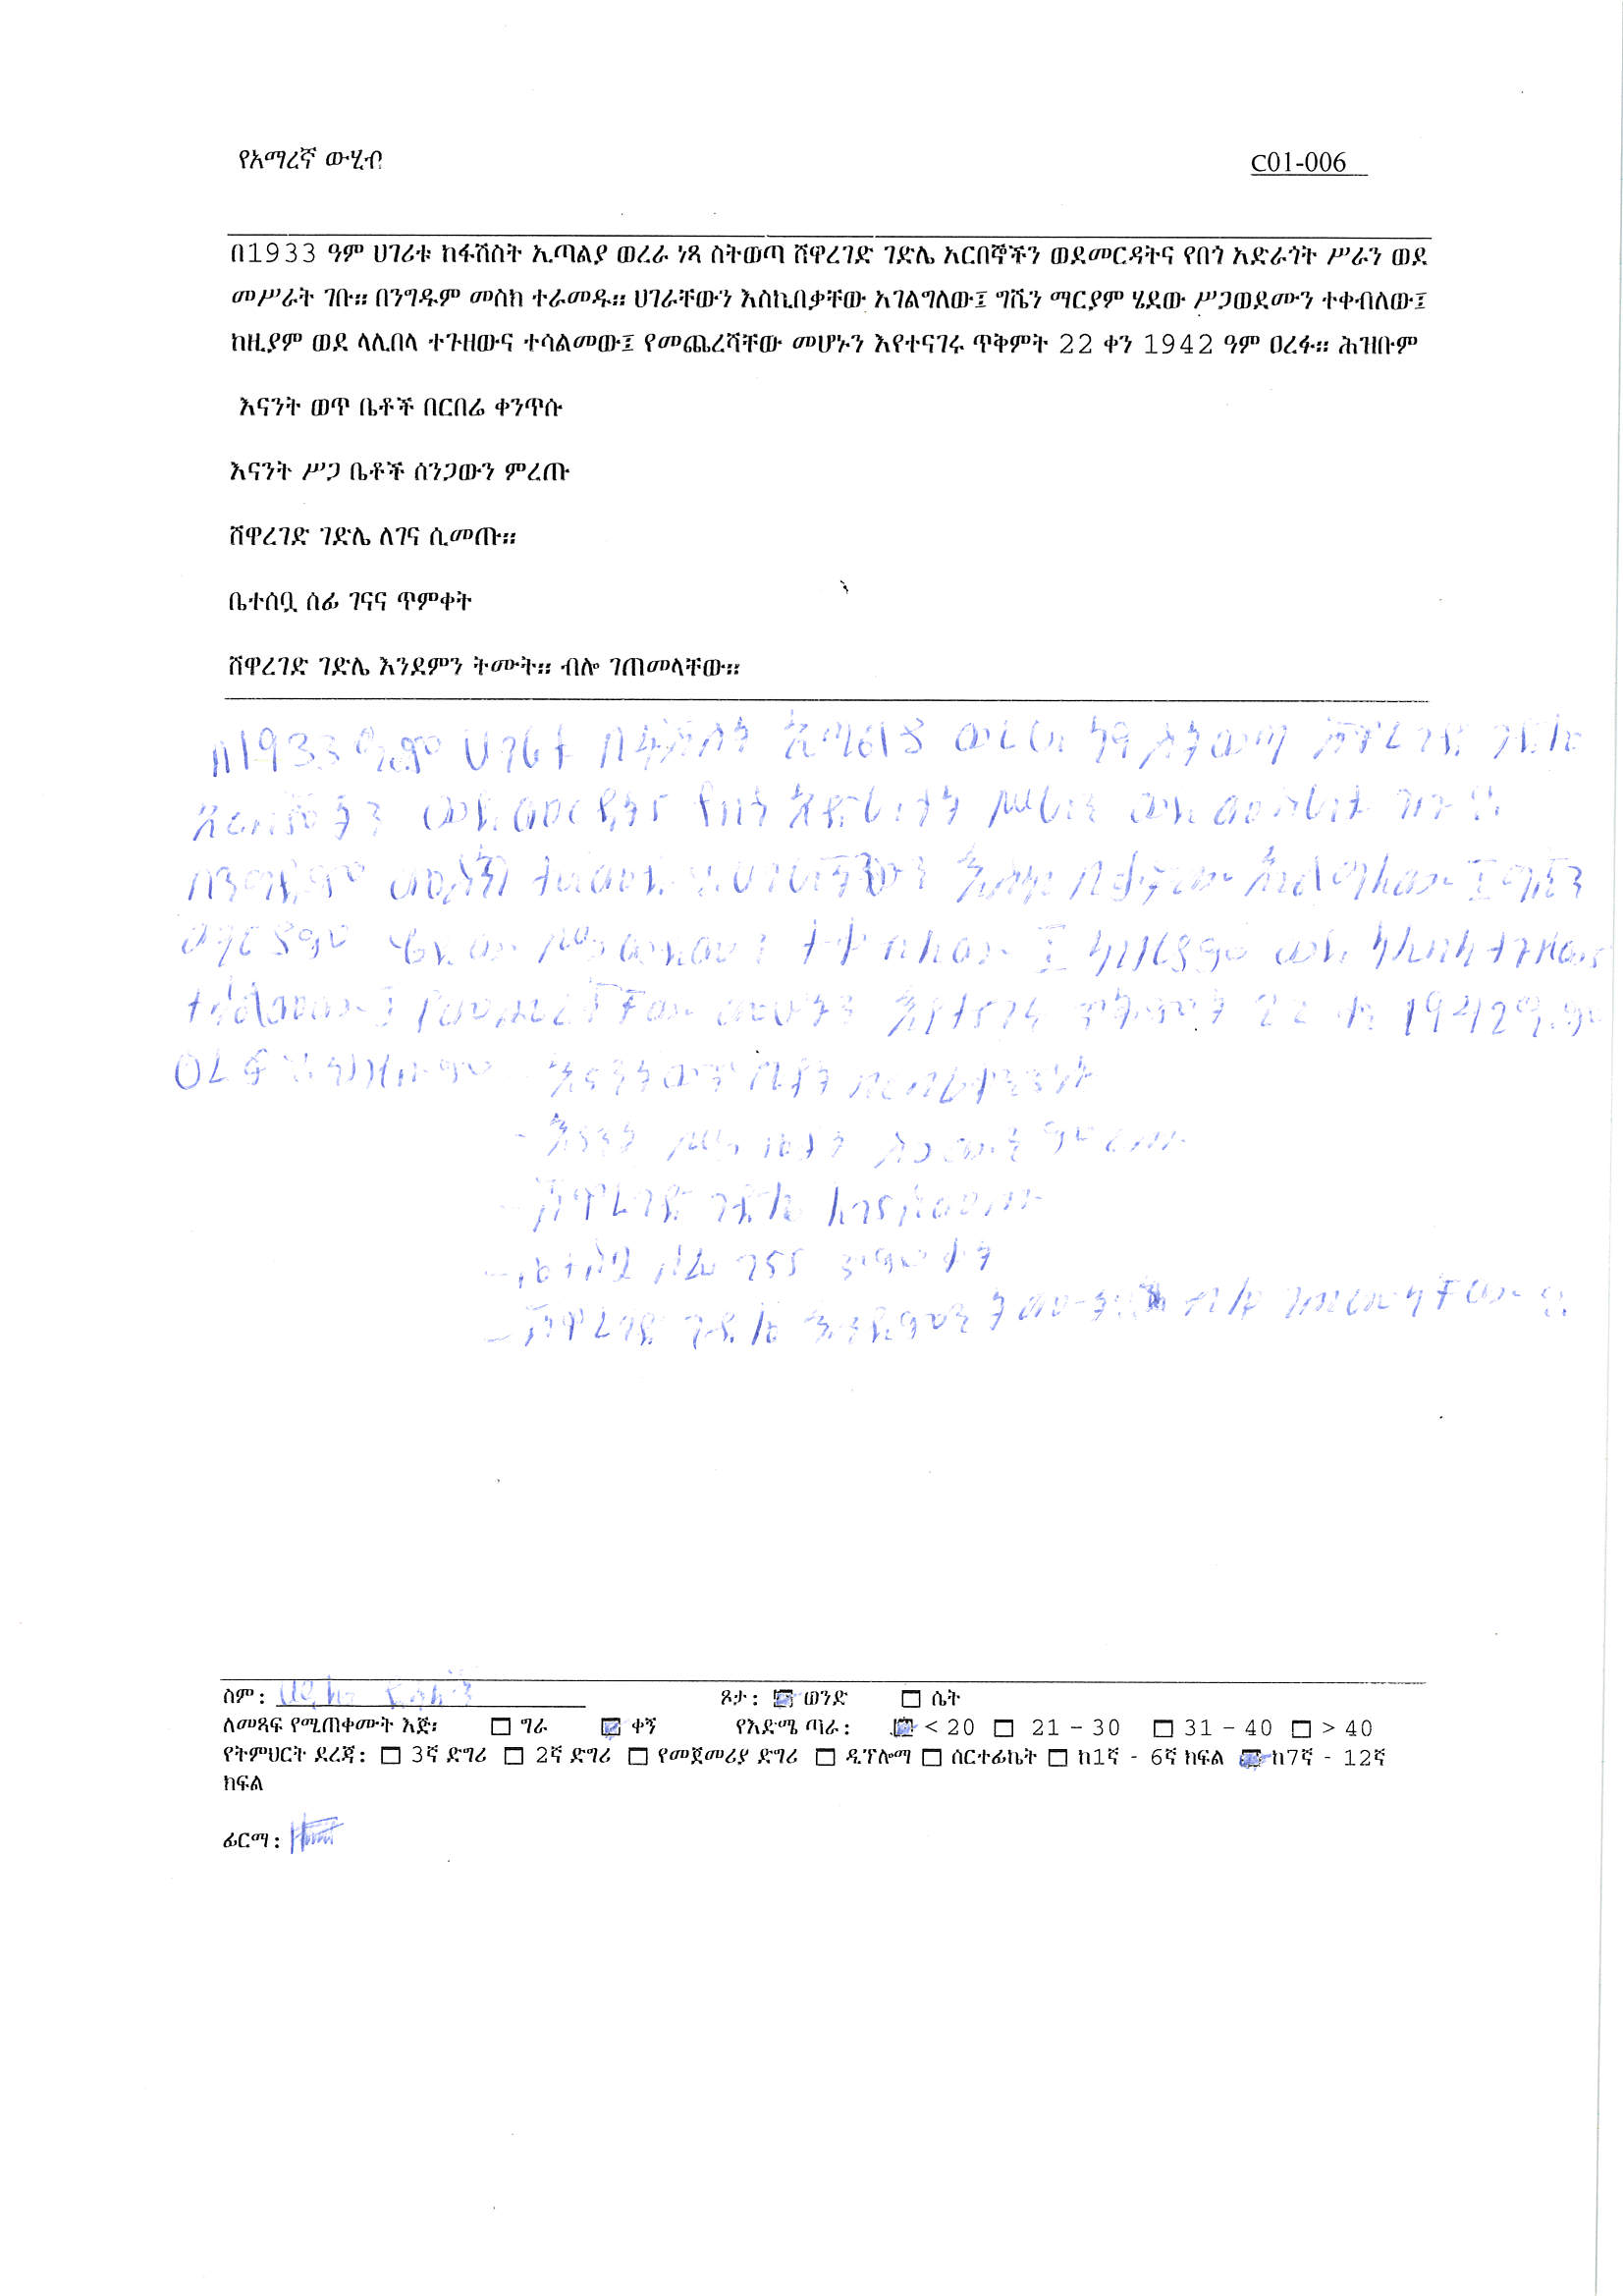 የአማረኛ ውሂብ
C01-006
በ1933 ዓም ሀገሪቱ ከፋሽስት ኢጣልያ ወረራ ነጻ ስትወጣ ሸዋረገድ ገድሌ አርበኞችን ወደመርዳትና የበጎ አድራጎት ሥራን ወደ
መሥራት ገቡ። በንግዱም መስክ ተራመዱ። ሀገራቸውን እስኪበቃቸው አገልግለው፤ ግሼን ማርያም ሄደው ሥጋወደሙን ተቀብለው፤
ከዚያም ወደ ላሊበላ ተጉዘውና ተሳልመው፤ የመጨረሻቸው መሆኑን እየተናገሩ ጥቅምት 22 ቀን 1942 ዓም ዐረፉ። ሕዝቡም
እናንት ወጥ ቤቶች በርበሬ ቀንጥሱ
እናንት ሥጋ ቤቶች ሰንጋውን ምረጡ
ሸዋረገድ ገድሌ ለገና ሲመጡ።
ቤተሰቧ ሰፊ ገናና ጥምቀት
ሸዋረገድ ገድሌ እንደምን ትሙት። ብሎ ገጠመላቸው።
በ1933 ዓ.ም ሀገሪት በፋሽስት ኢጣልያ ወረራ ነፃ ስትወጣ ሸዋረገድ ገድሌ
አርበኞችን ወደ መርዳትና የበጎ አድራጎት ሥራን ወደ መስራት ገቡ ።
በንግዱም መስክ ተራመዱ ። ሀገራቸውን እስኪ በቃቸው አገልግለው ፤ ግሼን
ማርያም ሄደው ሥጋወደሙን ተቀብለው ፤ ከዚያም ወደ ላሊበላ ተጉዘውና
ተሳልመው ፤ የመጨረሻቸው መሆኑን እየተናገሩ ጥቅምት 22 ቀን 1942 ዓ.ም
ዐረፉ ። ሕዝቡም እናንት ወጥ ቤቶች በርበሬ
- እናንት ሥጋ ቤቶች ምረጡ
- ሸዋረገድ ገድሌ ለገና ሲመጡ
- ቤተሰቧ ሰፊ ገናና ጥምቀት
- ሸዋረገድ ገድሌ እንደምን ትሙት ። ብሎ ።
ስም: ጾታ: ወንድ ሴት
ለመጻፍ የሚጠቀሙት እጅ፡ ግራ ቀኝ የእድሜ ጣራ: < 20 21 – 30 31 – 40 > 40
የትምህርት ደረጃ: 3ኛ ድግሪ 2ኛ ድግሪ የመጀመሪያ ድግሪ ዲፕሎማ ሰርተፊኬት ከ1ኛ - 6ኛ ክፍል ከ7ኛ - 12ኛ
ክፍል
ፊርማ: